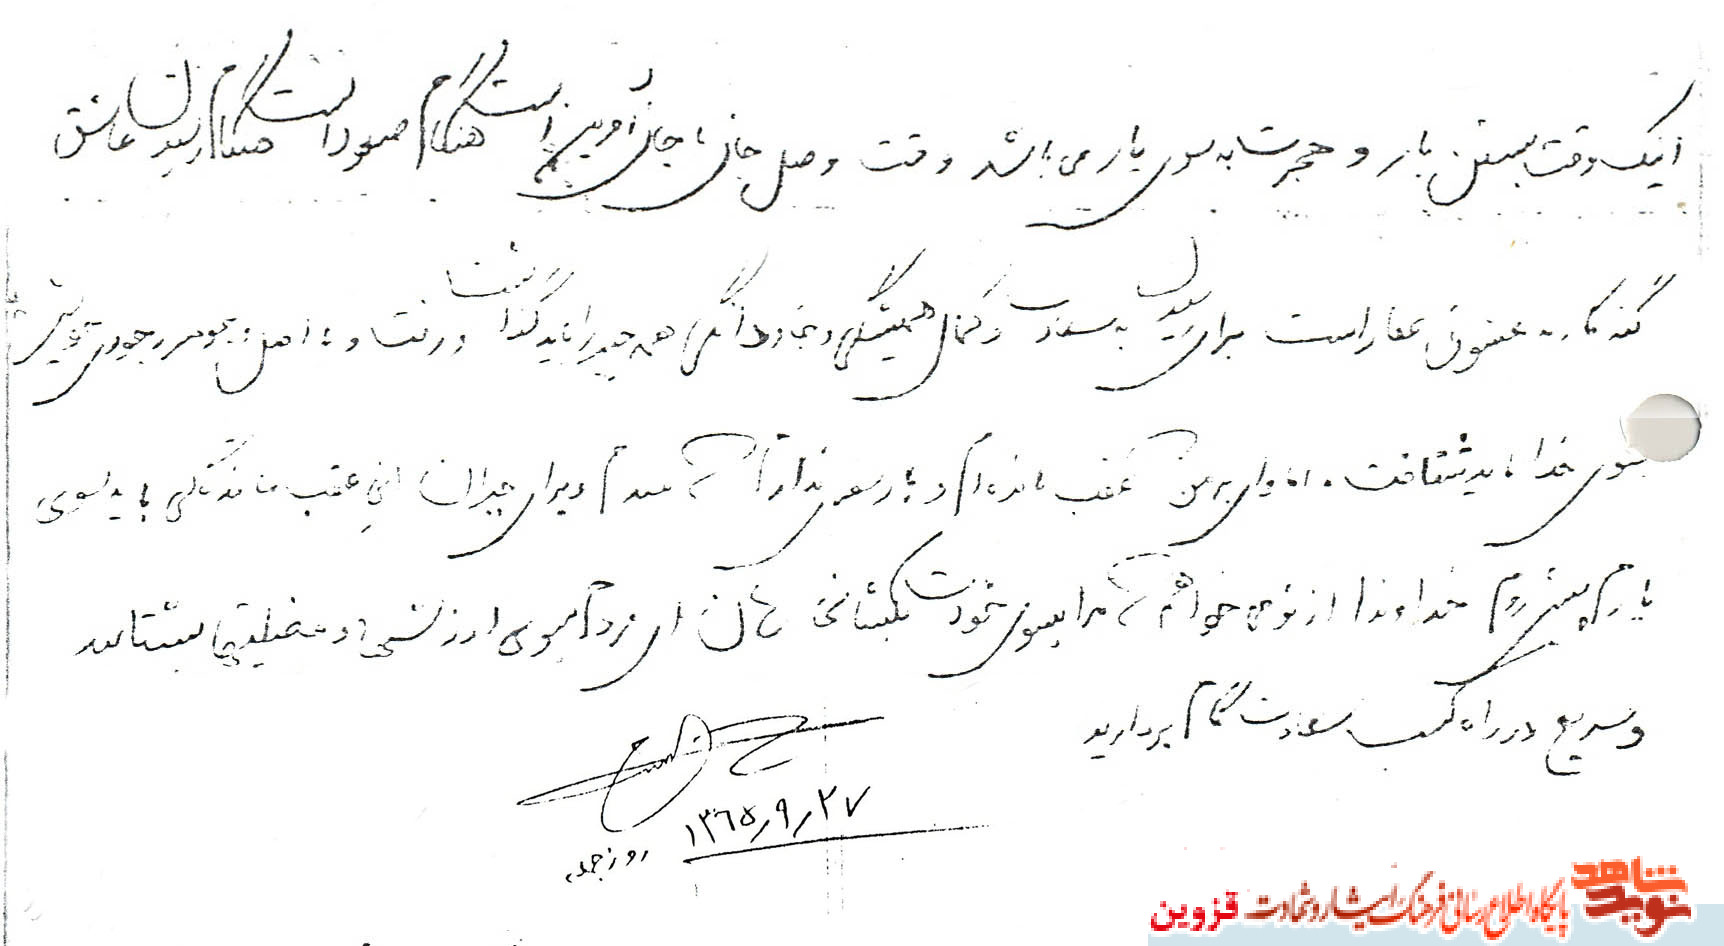 اینک وقت بستن بار و هجرت به سوی یار می باشد وقت وصل جان با جان آفرین است هنگام صعود است هنگام رسیدن عاشق
به معشوق است برای رسیدن به سعادت و کمال همیشگی و جاودانگی همه چیز را باید گذاشت و رفت و با اصل و جوهر وجودی خویش
بسوی خدا باید شتافت. اما وای بر من که عقب مانده ام و بار سفر ندارم که ببندم و برای جبران این عقب ماندگی باید بسوی
یارم پیش روم خداوندا از تو می خواهم که مرا بسوی خودت بکشانی حال ای مردم بسوی ارزشها و فضیلتها بشتابید
و سریع در راه کسب سعادت گام بردارید
۱۳۶۵٫۹٫۲۷
روز جمعه
نوید شاهد پایگاه اطلاع رسانی فرهنگ ایثار و شهادت قزوین